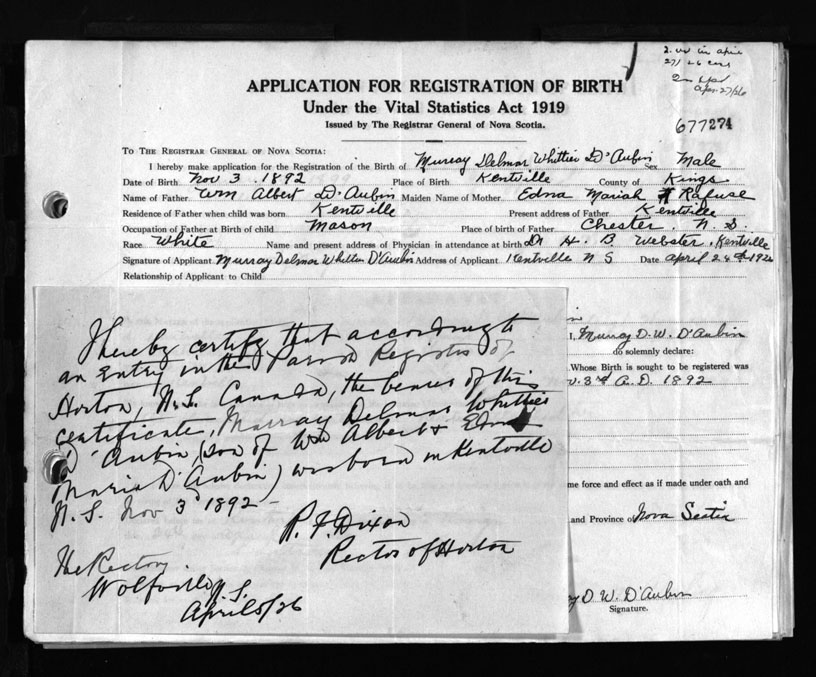 APPLICATION FOR REGISTRATION OF BIRTH
Under the Vital Statistics Act 1919
Issued by The Registrar General of Nova Scotia.
677274
TO THE REGISTRAR GENERAL OF NOVA SCOTIA:
I hereby make application for the Registration of the Birth of Murray Delmar Whittier D'Aubin Sex Male
Date of Birth Nov 3 . 1892 Place of Birth Kentville County of Kings
Name of Father Wm Albert D'Aubin Maiden Name of Mother Edna Mariah Rafuse
Residence of Father when child was born Kentville Present address of Father Kentville
Occupation of Father at Birth of child Mason Place of birth of Father Chester, N. S.
Race White Name and present address of Physician in attendance at birth Dr H. B. Webster, Kentville
Signature of Applicant Murray Delmar Whittier D'Aubin Address of Applicant Kentville N S Date April 24th 192
Relationship of Applicant to Child
I, Murray D. W. D'Aubin
do solemnly declare:
Whose Birth is sought to be registered was
3rd A. D. 1892
me force and effect as if made under oath and
and Province of Nova Scotia
D. W. D'Aubin
Signature.
I hereby certify that according to
an Entry in the Parish Register of
Horton, N.S. Canada, the bearer of this
certificate, Murray Delmar Whittier
D'Aubin (son of Wm Albert & Edna
Maria D'Aubin) was born in Kentville
N. S. Nov 3rd 1892 –
R. F. Dixon
Rector of Horton
The Rectory.
Wolfville N.S.
April 5/26